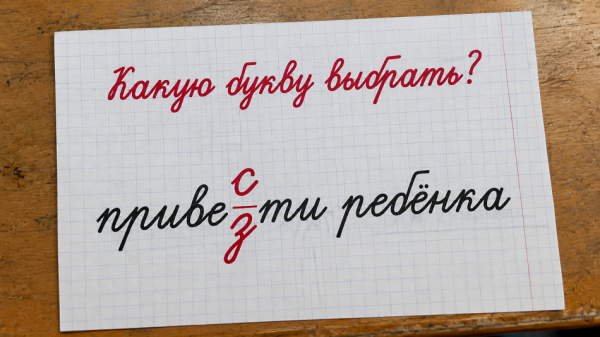 Какую букву выбрать?
приве с/з ти ребёнка